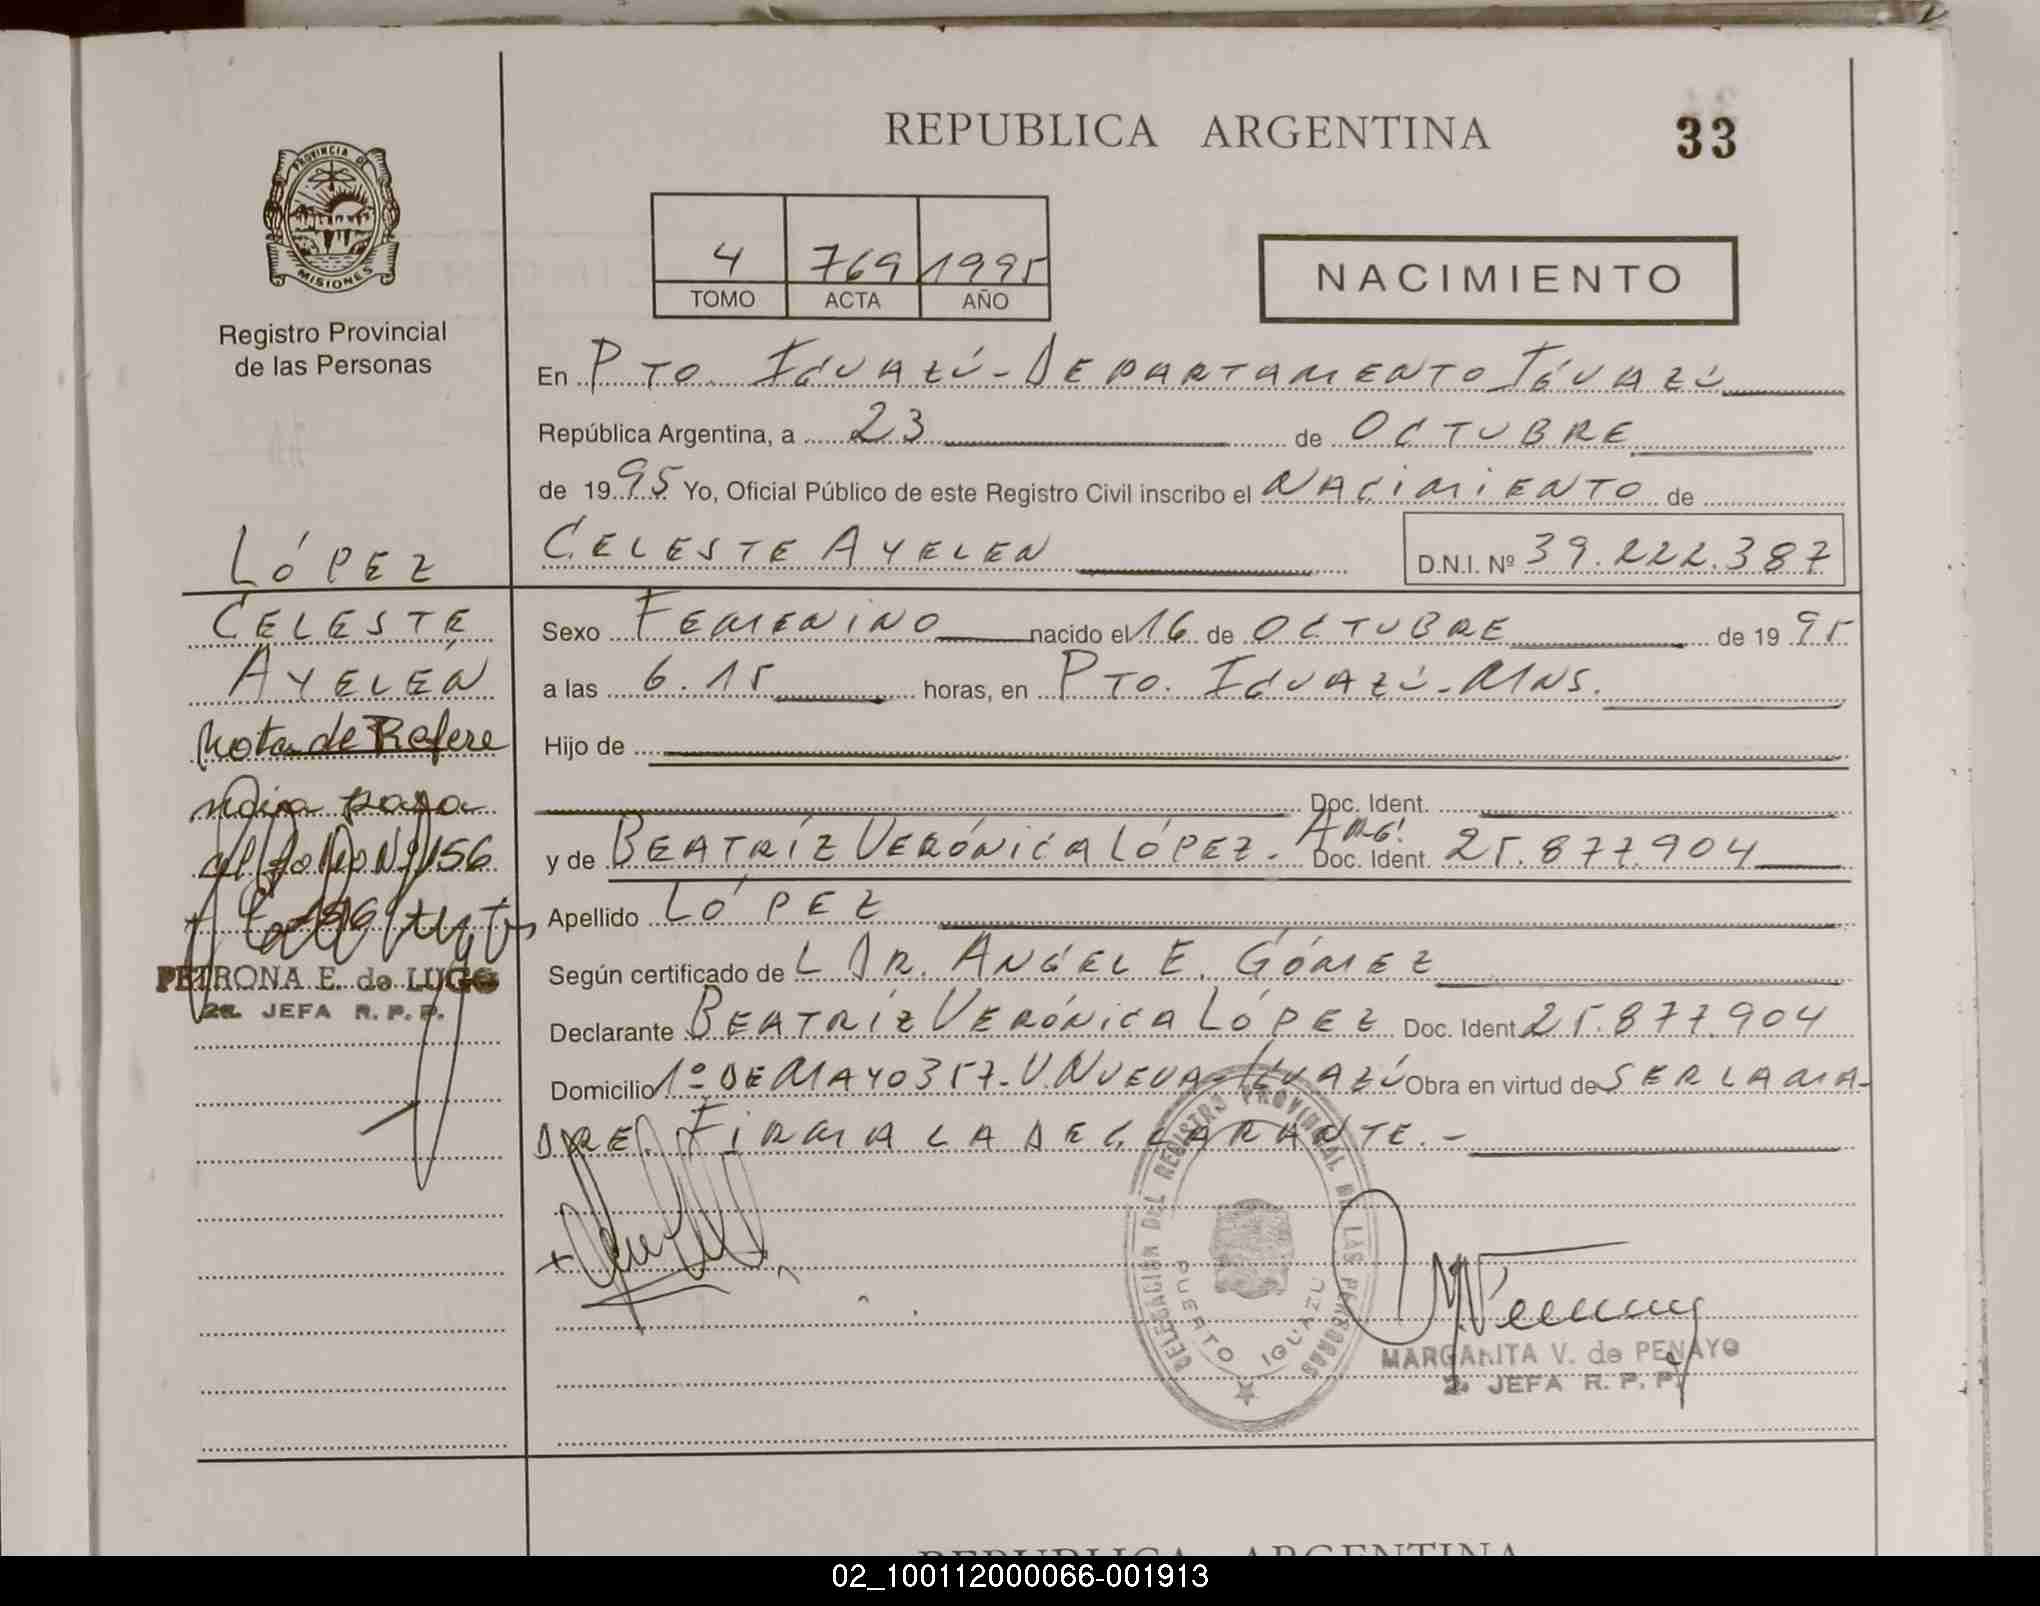 REPUBLICA ARGENTINA
33
PROVINCIA DE
MISIONES
Registro Provincial
de las Personas
4 769 1995
TOMO ACTA AÑO
NACIMIENTO
En PTO. IGUAZÚ - DEPARTAMENTO IGUAZÚ
República Argentina, a 23 de OCTUBRE
de 1995 Yo, Oficial Público de este Registro Civil inscribo el NACIMIENTO de
CELESTE AYELEN
D.N.I. Nº 39.222.387
LÓPEZ
CELESTE
AYELÉN
Nota de Refere
ncia pasa
al folio Nº 156
PETRONA E. de LUGO
2a. JEFA R. P. P.
Sexo FEMENINO nacido el 16 de OCTUBRE de 1995
a las 6.15 horas, en PTO. IGUAZÚ - MNS.
Hijo de
Doc. Ident.
y de BEATRÍZ VERÓNICA LÓPEZ. Doc. Ident. ARG. 25.877.904
Apellido LÓPEZ
Según certificado de L DR. ANGEL E. GÓMEZ
Declarante BEATRÍZ VERÓNICA LÓPEZ Doc. Ident 25.877.904
Domicilio 1º DE MAYO 357 - V. NUEVA - IGUAZÚ Obra en virtud de SER LA MA-
DRE. FIRMA LA DECLARANTE. -
DELEGACION DEL REGISTRO PROVINCIAL DE LAS PERSONAS
PUERTO IGUAZU
MARGARITA V. de PENAYO
2a. JEFA R. P. P.
REPUBLICA ARGENTINA
02_100112000066-001913